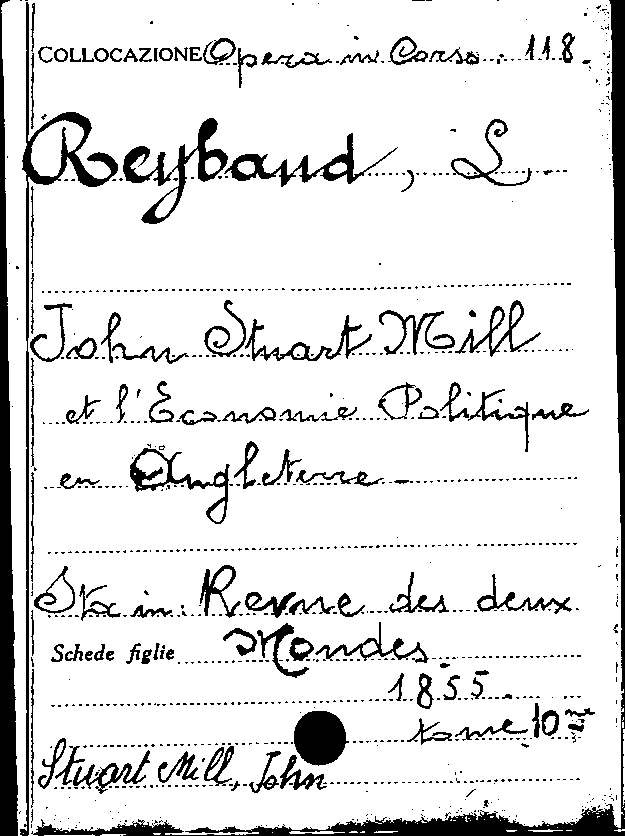 COLLOCAZIONE Opera in Corso. 118.
Reybaud, L.
John Stuart Mill
et l'Économie Politique
en Angleterre -
Sta in: Revue des deux
Schede figlie Mondes.
1855.
tome 10me
Stuart Mill, John